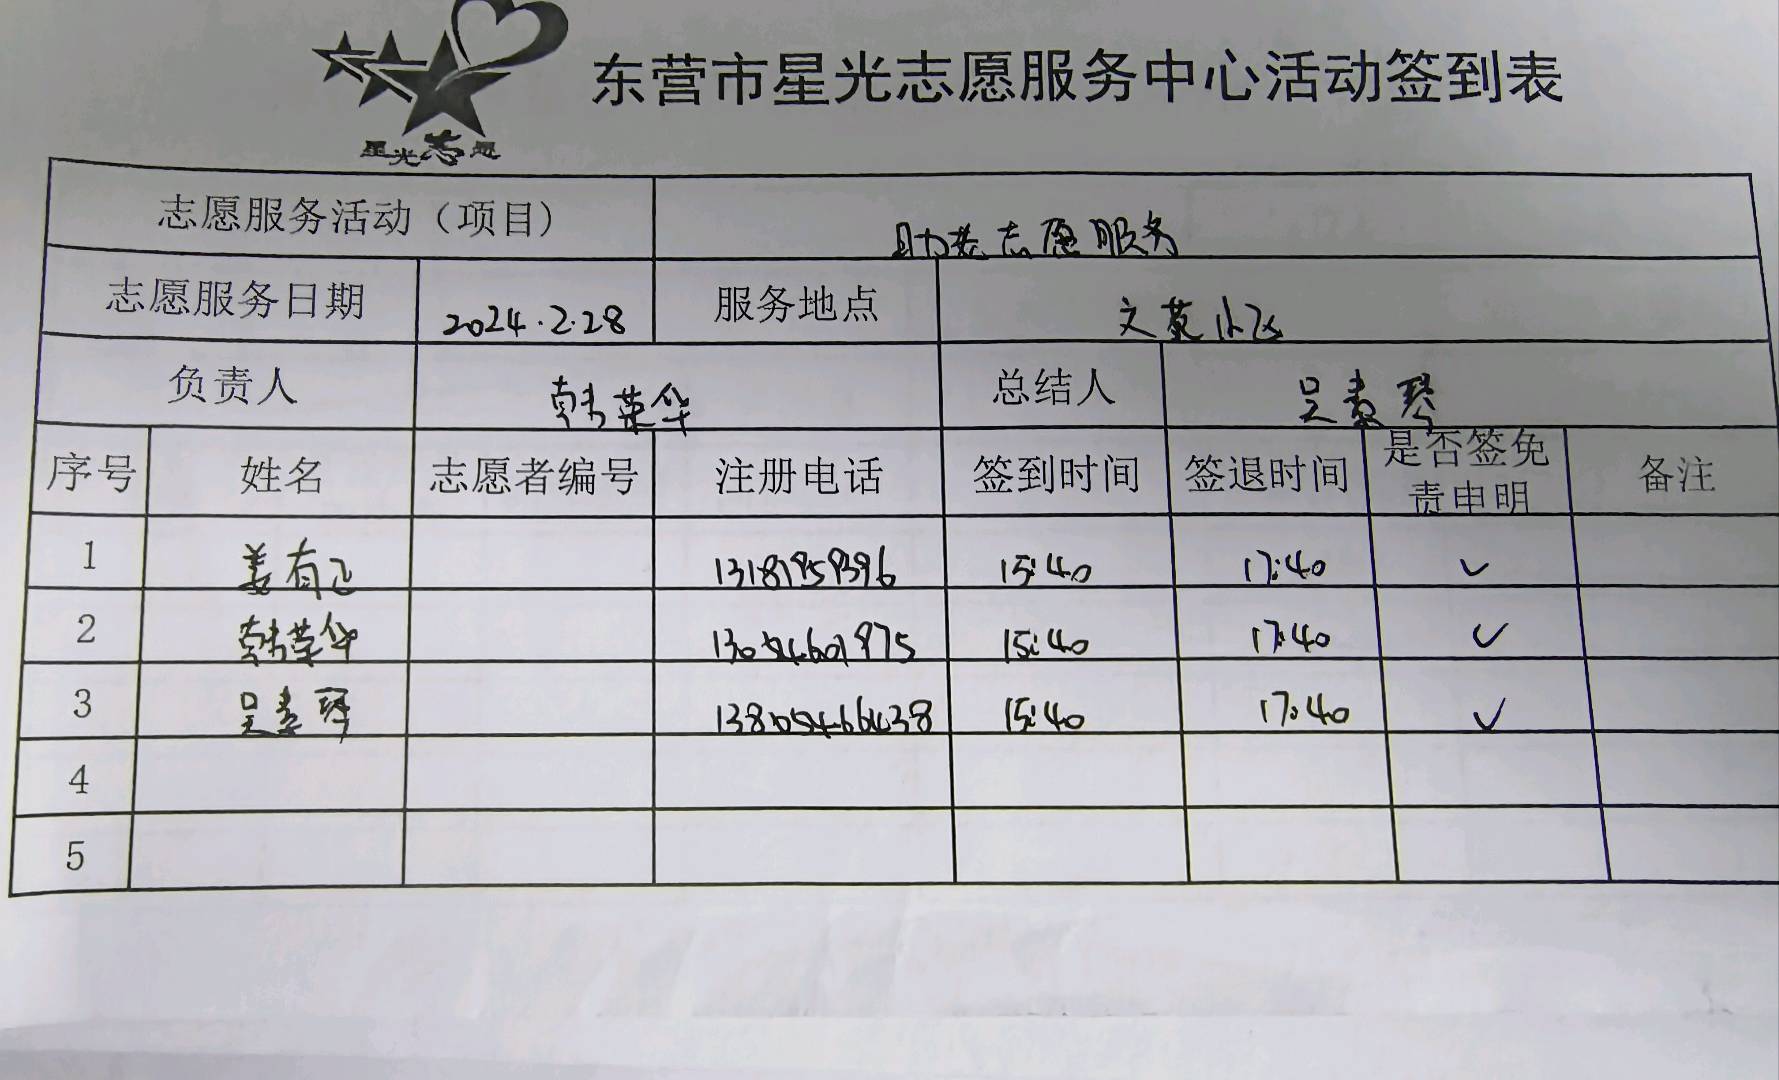 星光志愿
东营市星光志愿服务中心活动签到表
志愿服务活动（项目） 助老志愿服务
志愿服务日期 2024.2.28 服务地点 文苑小区
负责人 韩荣华 总结人 吴素琴
序号 姓名 志愿者编号 注册电话 签到时间 签退时间 是否签免
责申明 备注
1 姜有飞 15:40 17:40 ✓
2 韩荣华 15:40 17:40 ✓
3 吴素琴 13805466438 15:40 17:40 ✓
4
5